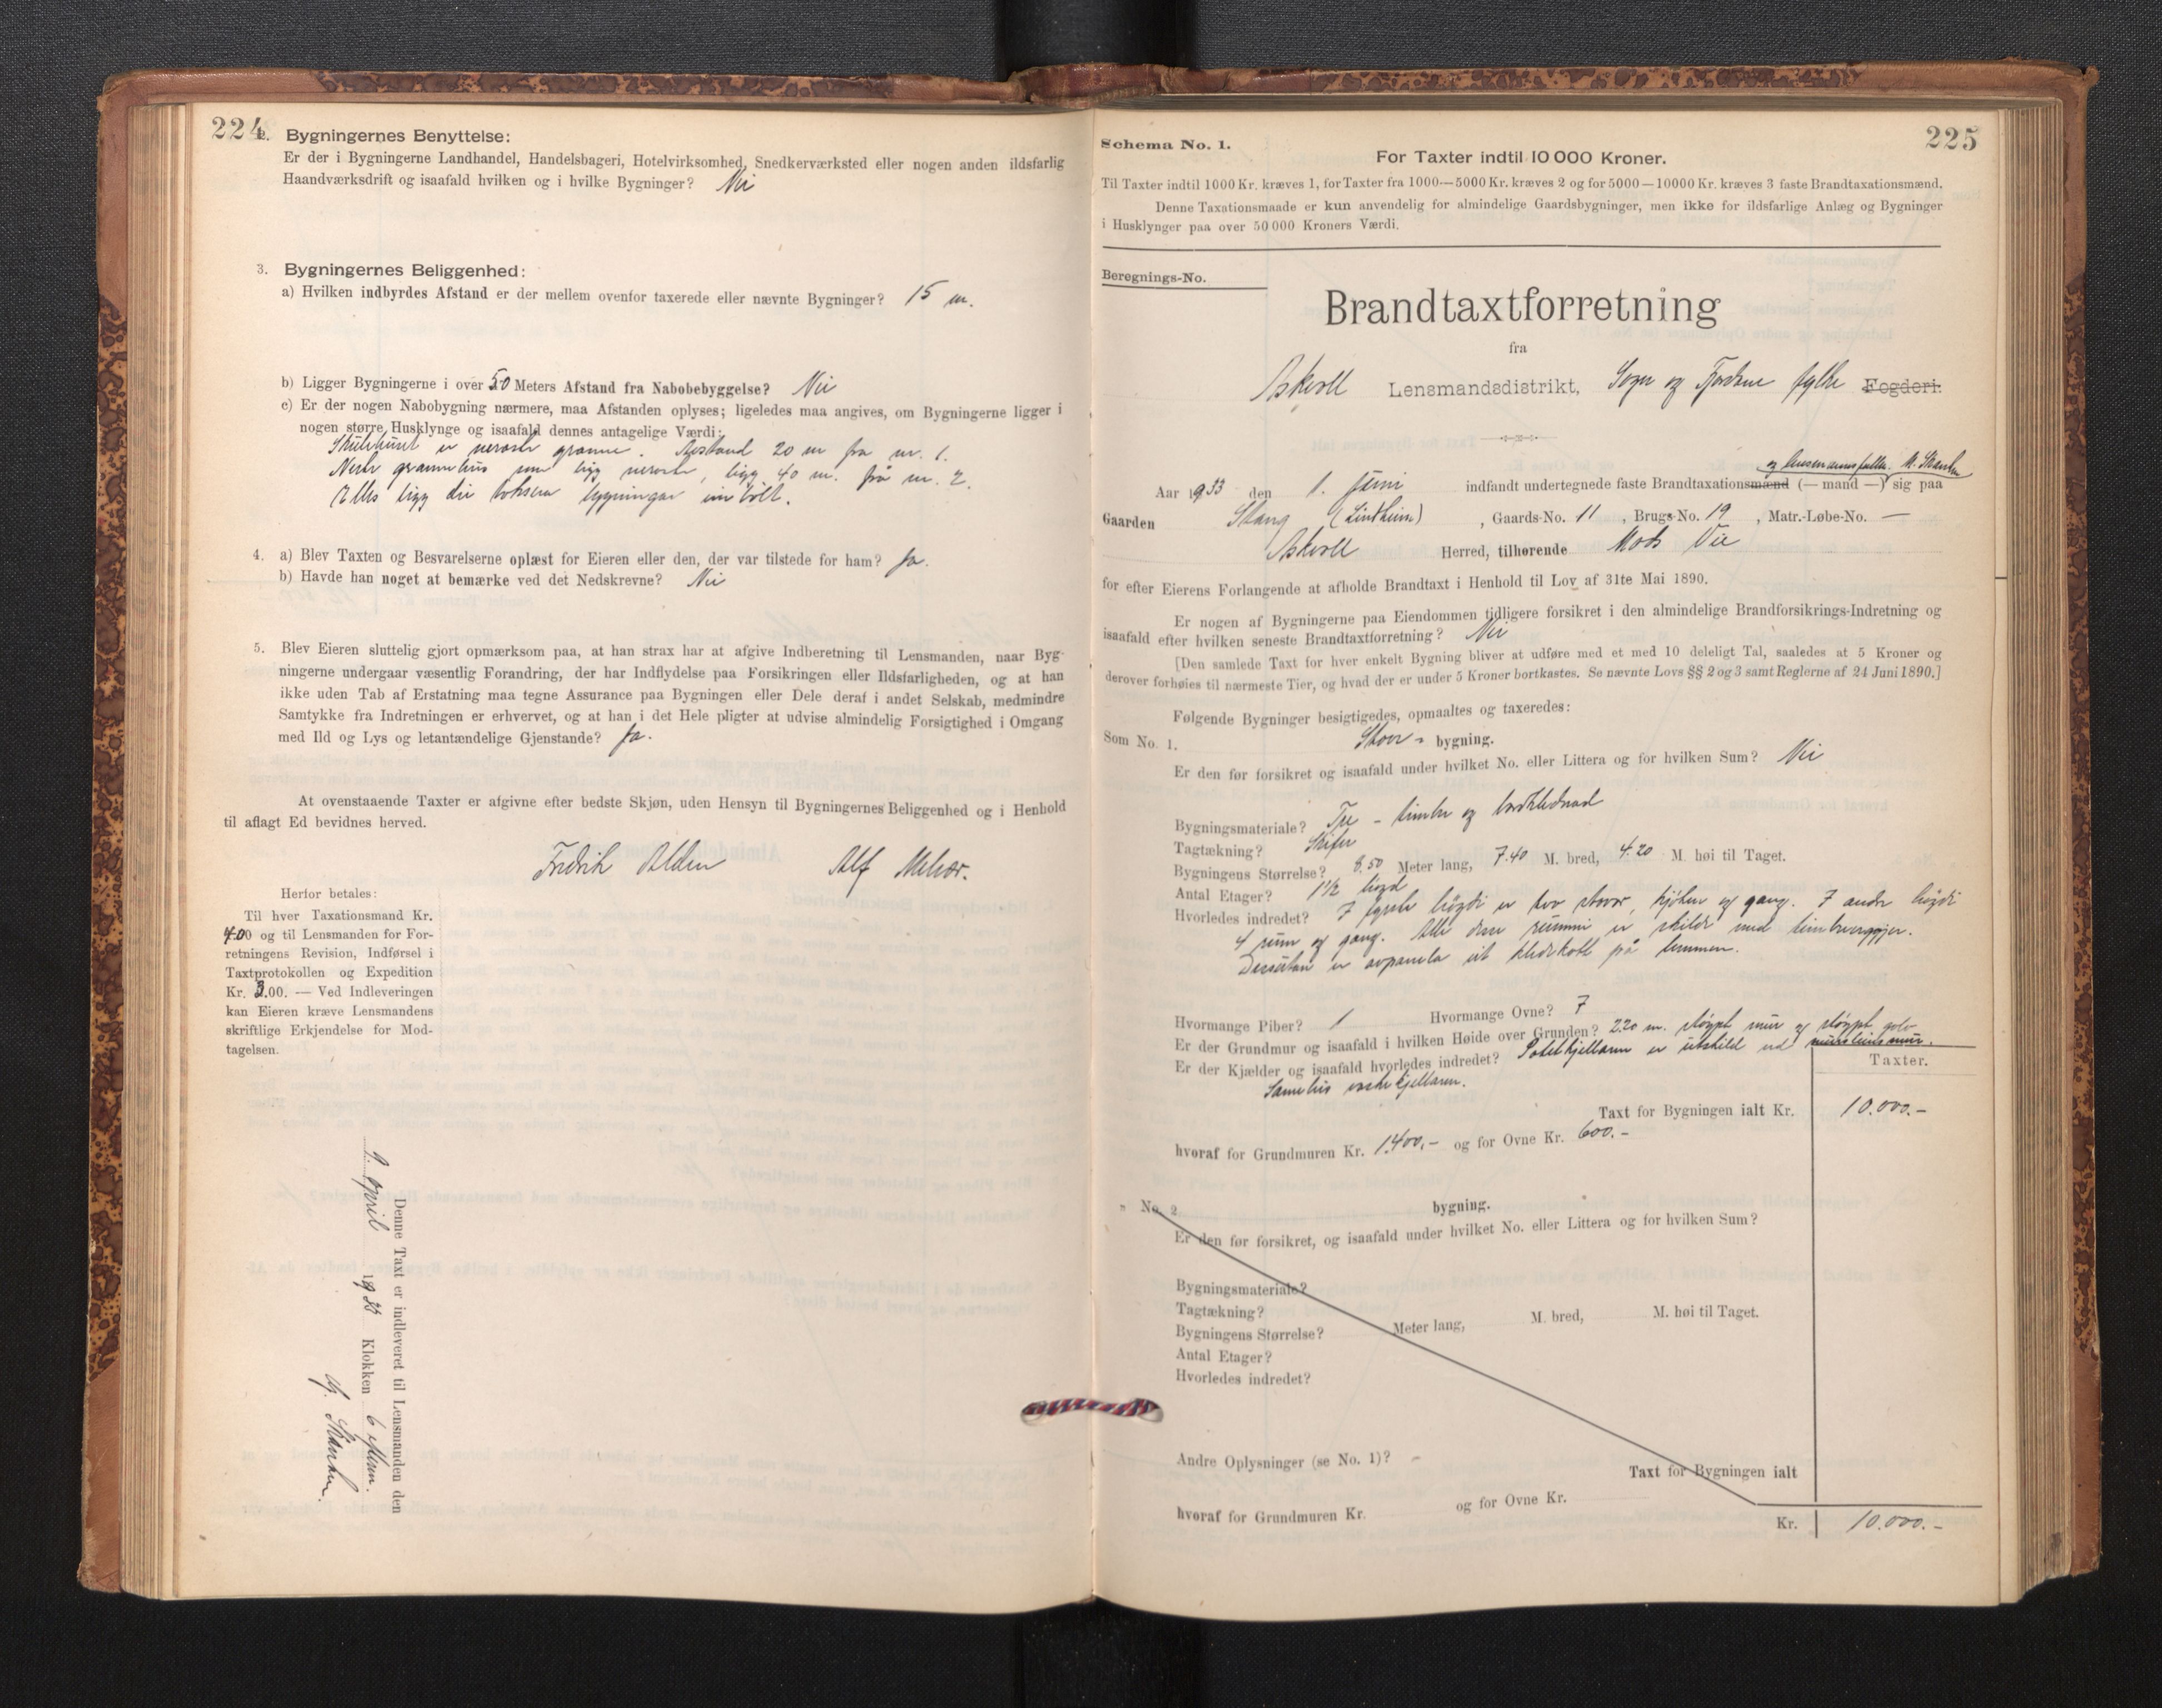 224
2. Bygningernes Benyttelse:
Er der i Bygningerne Landhandel, Handelsbageri, Hotelvirksomhed, Snedkerværksted eller nogen anden ildsfarlig
Haandværksdrift og isaafald hvilken og i hvilke Bygninger? Nei
3. Bygningernes Beliggenhed:
a) Hvilken indbyrdes Afstand er der mellem ovenfor taxerede eller nævnte Bygninger? 15 m.
b) Ligger Bygningerne i over 50 Meters Afstand fra Nabobebyggelse? Nei
c) Er der nogen Nabobygning nærmere, maa Afstanden oplyses; ligeledes maa angives, om Bygningerne ligger i
nogen større Husklynge og isaafald dennes antagelige Værdi:
Skulehuset er neraste granne. Avstand 20 m fra nr. 1.
Neste grannehus som ligg neraste, ligg 40 m. frå nr. 2.
Elles ligg dei takserte bygningar
4. a) Blev Taxten og Besvarelserne oplæst for Eieren eller den, der var tilstede for ham? Ja.
b) Havde han noget at bemærke ved det Nedskrevne? Nei
5. Blev Eieren sluttelig gjort opmærksom paa, at han strax har at afgive Indberetning til Lensmanden, naar Byg-
ningerne undergaar væsentlig Forandring, der har Indflydelse paa Forsikringen eller Ildsfarligheden, og at han
ikke uden Tab af Erstatning maa tegne Assurance paa Bygningen eller Dele deraf i andet Selskab, medmindre
Samtykke fra Indretningen er erhvervet, og at han i det Hele pligter at udvise almindelig Forsigtighed i Omgang
med Ild og Lys og letantændelige Gjenstande? Ja.
At ovenstaaende Taxter er afgivne efter bedste Skjøn, uden Hensyn til Bygningernes Beliggenhed og i Henhold
til aflagt Ed bevidnes herved.
Fredrik Alden Alf Melvær.
Herfor betales:
Til hver Taxationsmand Kr.
4.00 og til Lensmanden for For-
retningens Revision, Indførsel i
Taxtprotokollen og Expedition
Kr. 3.00. — Ved Indleveringen
kan Eieren kræve Lensmandens
skriftlige Erkjendelse for Mod-
tagelsen.
Denne Taxt er indleveret til Lensmanden den
9. april 1933 Klokken 6 eftm.
225
Schema No. 1.
For Taxter indtil 10 000 Kroner.
Til Taxter indtil 1000 Kr. kræves 1, for Taxter fra 1000—5000 Kr. kræves 2 og for 5000—10000 Kr. kræves 3 faste Brandtaxationsmænd.
Denne Taxationsmaade er kun anvendelig for almindelige Gaardsbygninger, men ikke for ildsfarlige Anlæg og Bygninger
i Husklynger paa over 50 000 Kroners Værdi.
Beregnings-No.
Brandtaxtforretning
fra
Askvoll Lensmandsdistrikt, Sogn og Fjordane fylke Fogderi.
og lensmannsfullm.
Aar 1933 den 1. juni indfandt undertegnede faste Brandtaxationsmænd (— mand —) sig paa
Gaarden Stang (Lindheim), Gaards-No. 11, Brugs-No. 19, Matr.-Løbe-No. —
Askvoll Herred, tilhørende Mads Vie
for efter Eierens Forlangende at afholde Brandtaxt i Henhold til Lov af 31te Mai 1890.
Er nogen af Bygningerne paa Eiendommen tidligere forsikret i den almindelige Brandforsikrings-Indretning og
isaafald efter hvilken seneste Brandtaxtforretning? Nei
[Den samlede Taxt for hver enkelt Bygning bliver at udføre med et med 10 deleligt Tal, saaledes at 5 Kroner og
derover forhøies til nærmeste Tier, og hvad der er under 5 Kroner bortkastes. Se nævnte Lovs §§ 2 og 3 samt Reglerne af 24 Juni 1890.]
Følgende Bygninger besigtigedes, opmaaltes og taxeredes:
Som No. 1. Stove- bygning.
Er den før forsikret og isaafald under hvilket No. eller Littera og for hvilken Sum? Nei
Bygningsmateriale? Tre - timbr og bordklednad
Tagtækning? Skifer
Bygningens Størrelse? 8.50 Meter lang, 7.40 M. bred, 4.20 M. høi til Taget.
Antal Etager? 1½ høgd
Hvorledes indredet? I fyrste høgdi er tvo stover, kjøken og gang. I andre høgdi
4 rum og gang. Alle desse rummi er skilde med timbrveggjer.
Dessutan er avpanela eit kledekott på lemmen.
Hvormange Piber? 1 Hvormange Ovne? 7
Er der Grundmur og isaafald i hvilken Høide over Grunden? 2.20 m. støypt mur og støypt golv
Er der Kjælder og isaafald hvorledes indredet? Potetkjellaren er utskild ved mursteinsmur.
Sameleis vaskekjellaren.
Taxter.
Taxt for Bygningen ialt Kr. 10.000.-
hvoraf for Grundmuren Kr. 1.400.- og for Ovne Kr. 600.-
" No. 2 bygning.
Er den før forsikret, og isaafald under hvilket No. eller Littera og for hvilken Sum?
Bygningsmateriale?
Tagtækning?
Bygningens Størrelse? Meter lang, M. bred, M. høi til Taget.
Antal Etager?
Hvorledes indredet?
Andre Oplysninger (se No. 1)?
Taxt for Bygningen ialt
hvoraf for Grundmuren Kr. og for Ovne Kr.
Kr. 10.000.-